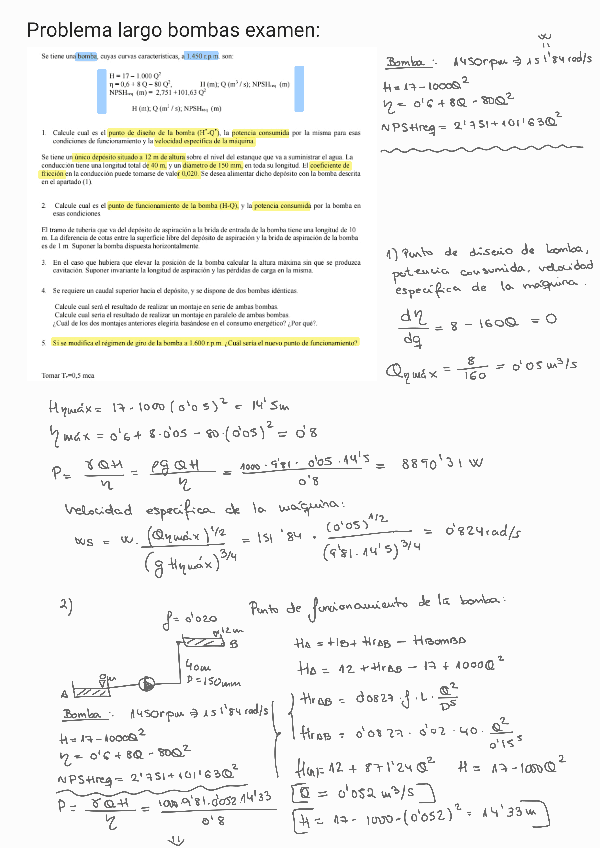 Problema largo bombas examen:
Se tiene una bomba, cuyas curvas características, a 1.450 r.p.m. son:
H = 17 – 1.000 Q²
η = 0,6 + 8 Q – 80 Q², H (m); Q (m³ / s); NPSHreq (m)
NPSHreq (m) = 2,751 +101,63 Q²
H (m); Q (m³ / s); NPSHreq (m)
1. Calcule cual es el punto de diseño de la bomba (H*-Q*), la potencia consumida por la misma para esas
condiciones de funcionamiento y la velocidad específica de la máquina
Se tiene un único depósito situado a 12 m de altura sobre el nivel del estanque que va a suministrar el agua. La
conducción tiene una longitud total de 40 m, y un diámetro de 150 mm, en toda su longitud. El coeficiente de
fricción en la conducción puede tomarse de valor 0,020. Se desea alimentar dicho depósito con la bomba descrita
en el apartado (1).
2. Calcule cual es el punto de funcionamiento de la bomba (H-Q), y la potencia consumida por la bomba en
esas condiciones
El tramo de tubería que va del depósito de aspiración a la brida de entrada de la bomba tiene una longitud de 10
m. La diferencia de cotas entre la superficie libre del depósito de aspiración y la brida de aspiración de la bomba
es de 1 m. Suponer la bomba dispuesta horizontalmente.
3. En el caso que hubiera que elevar la posición de la bomba calcular la altura máxima sin que se produzca
cavitación. Suponer invariante la longitud de aspiración y las pérdidas de carga en la misma.
4. Se requiere un caudal superior hacia el depósito, y se dispone de dos bombas idénticas.
Calcule cual será el resultado de realizar un montaje en serie de ambas bombas.
Calcule cual sería el resultado de realizar un montaje en paralelo de ambas bombas
¿Cual de los dos montajes anteriores elegiría basándose en el consumo energético? ¿Por qué?.
5. Si se modifica el régimen de giro de la bomba a 1.600 r.p.m. ¿Cual sería el nuevo punto de funcionamiento?
Tomar Tv=0,5 mca
w
=
Bomba: 1450rpm ⇒ 151'84 rad/s
H = 17 - 1000Q²
η = 0'6 + 8Q - 80Q²
NPSHreq = 2'751 + 101'63Q²
1) Punto de diseño de bomba,
potencia consumida, velocidad
específica de la máquina.
dη/dq = 8 - 160Q = 0
Qηmáx = 8/160 = 0'05 m³/s
Hηmáx = 17 - 1000 (0'05)² = 14'5m
ηmáx = 0'6 + 8·0'05 - 80·(0'05)² = 0'8
P = γQH/η = ρgQH/η = 1000·9'81·0'05·14'5/0'8 = 8890'31 W
Velocidad específica de la máquina:
ws = w·(Qηmáx)^1/2/(g Hηmáx)^3/4 = 151'84 · (0'05)^1/2/(9'81·14'5)^3/4 = 0'824 rad/s
2) Punto de funcionamiento de la bomba:
f = 0'020
12m
B
40m
D = 150mm
0m
A
HA = HB + HrAB - HBOMBA
HA = 12 + HrAB - 17 + 1000Q²
HrAB = 0'0827 · f · L · Q²/D⁵
HrAB = 0'0827 · 0'02 · 40 · Q²/0'15⁵
Bomba: 1450rpm ⇒ 151'84 rad/s
H = 17 - 1000Q²
η = 0'6 + 8Q - 80Q²
NPSHreq = 2'751 + 101'63Q²
= 12 + 871'24Q² H = 17 - 1000Q²
Q = 0'052 m³/s
H = 17 - 1000·(0'052)² = 14'33m
P = γQH/η = 1000·9'81·0'052·14'33/0'8
⇓